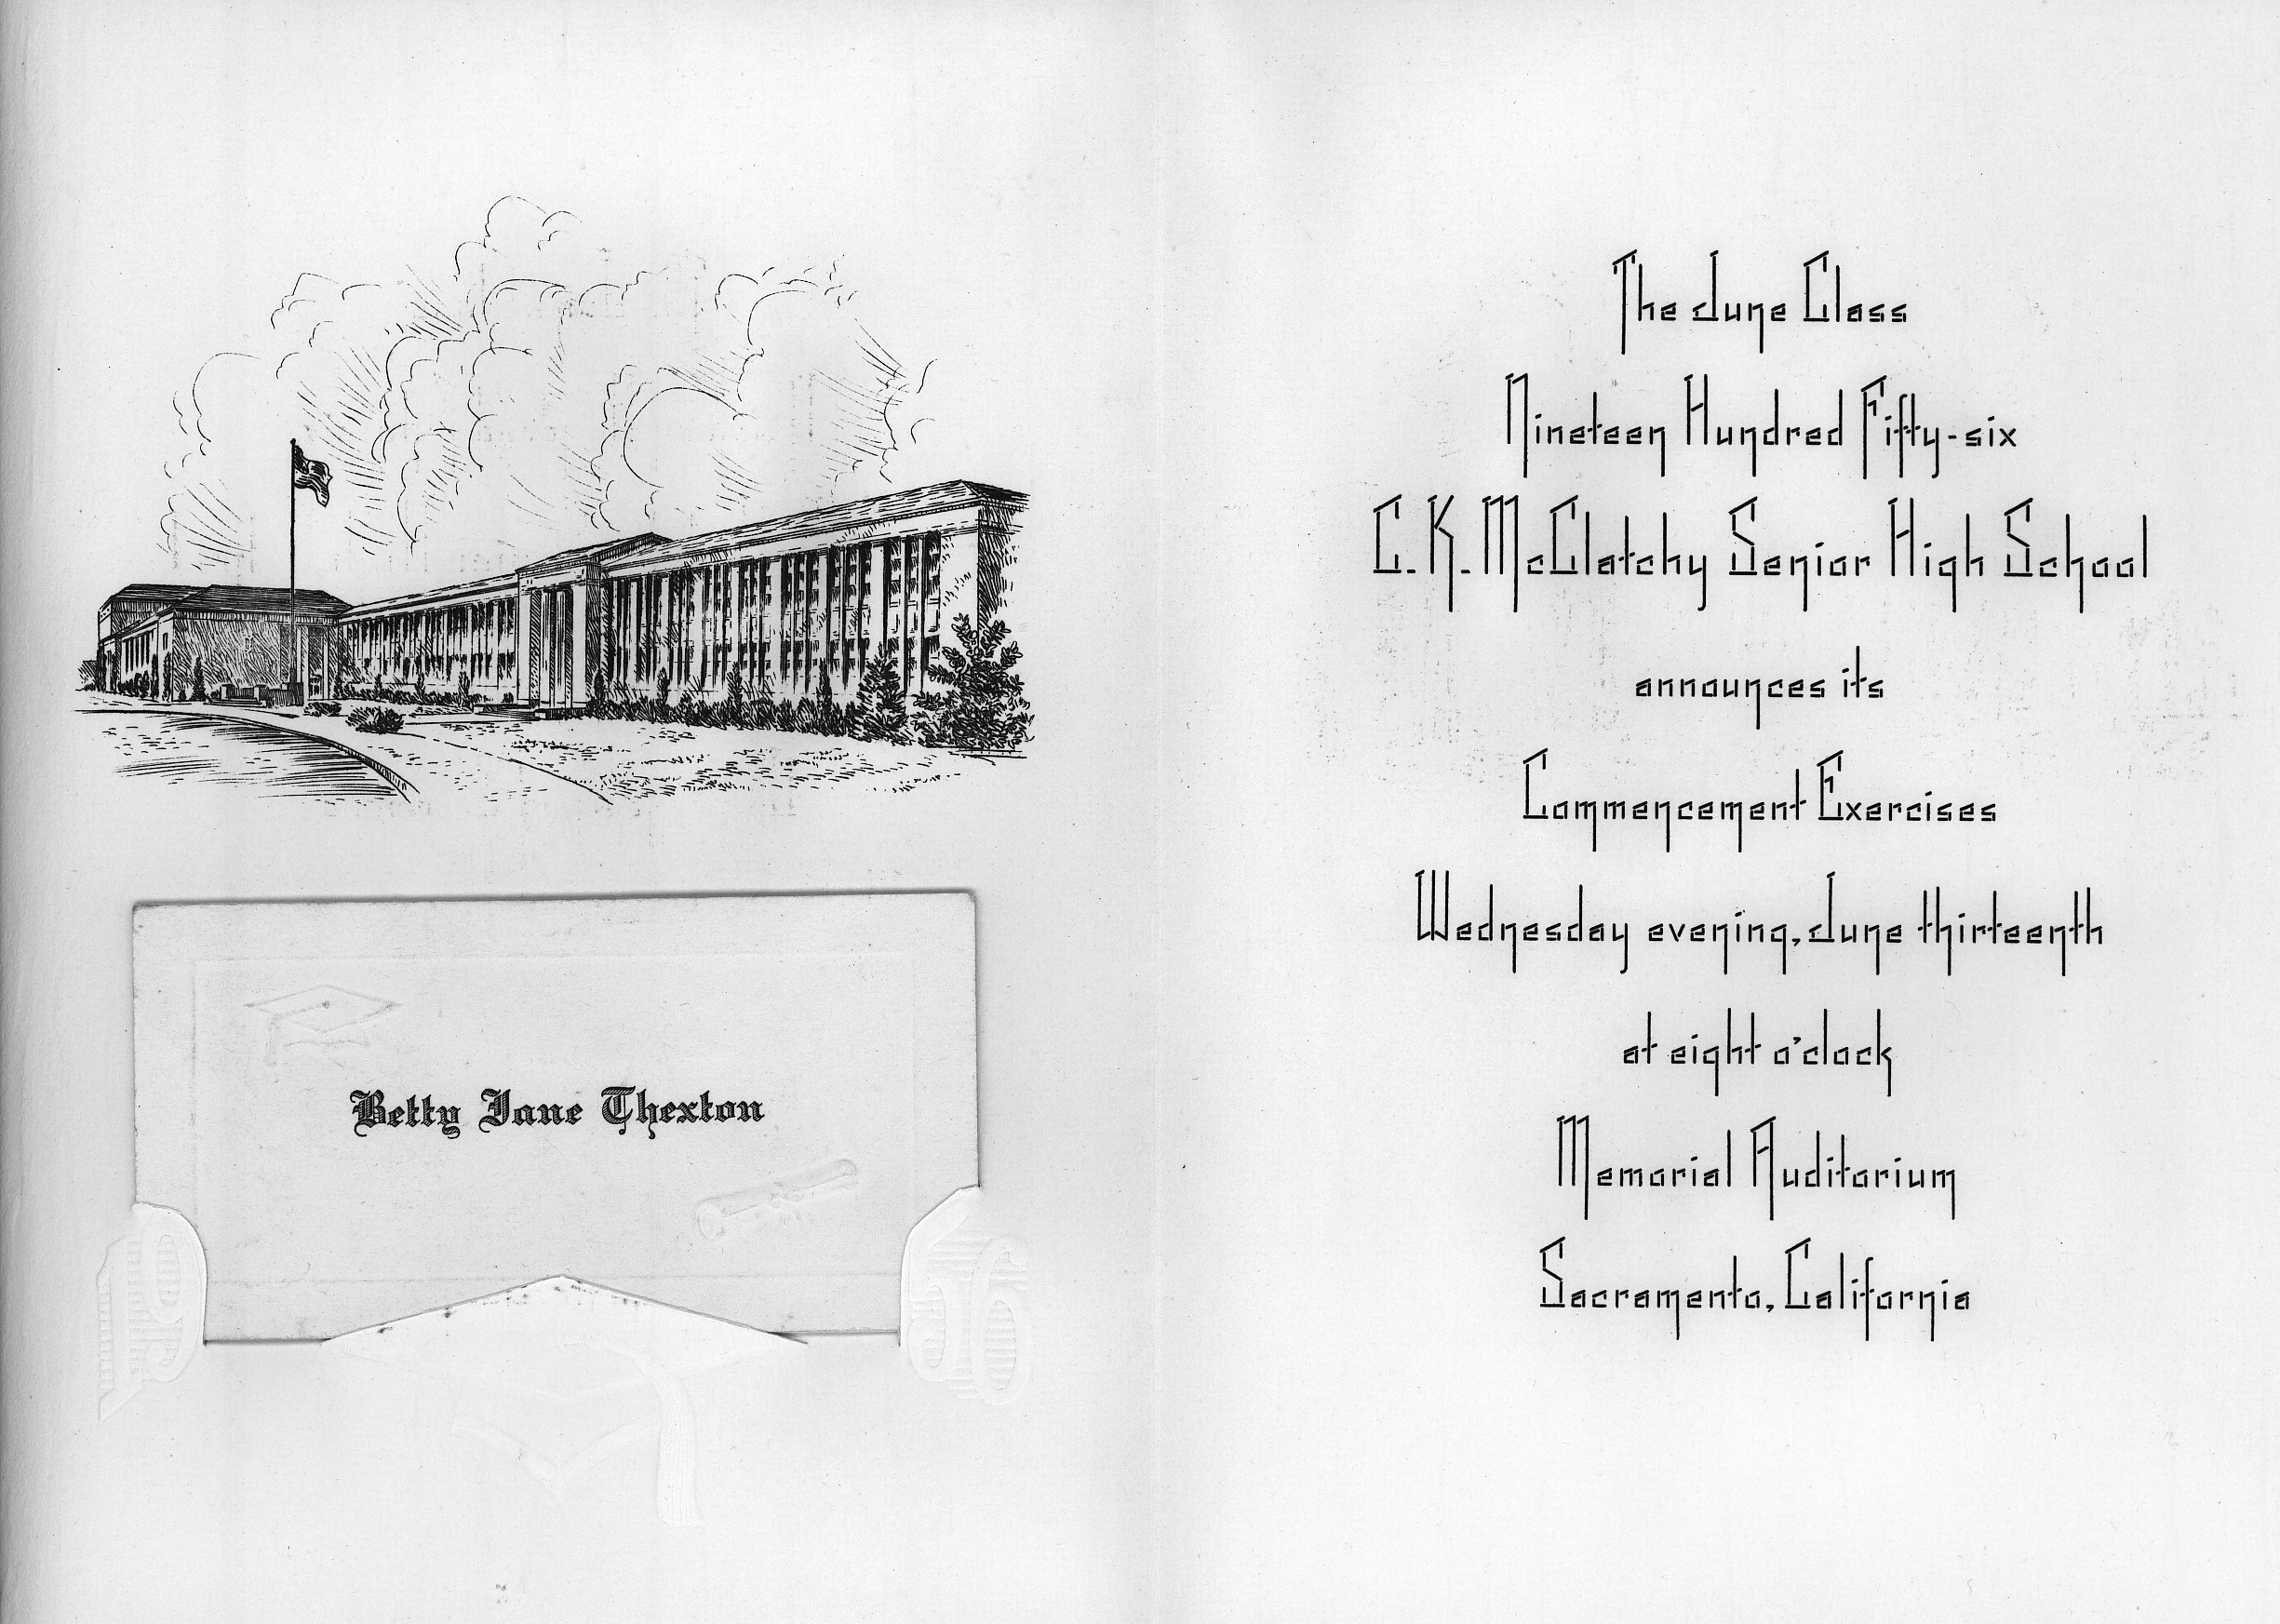 Betty Jane Thexton
19 56
The June Class
Nineteen Hundred Fifty-six
C.K. McClatchy Senior High School
announces its
Commencement Exercises
Wednesday evening, June thirteenth
at eight o'clock
Memorial Auditorium
Sacramento, California